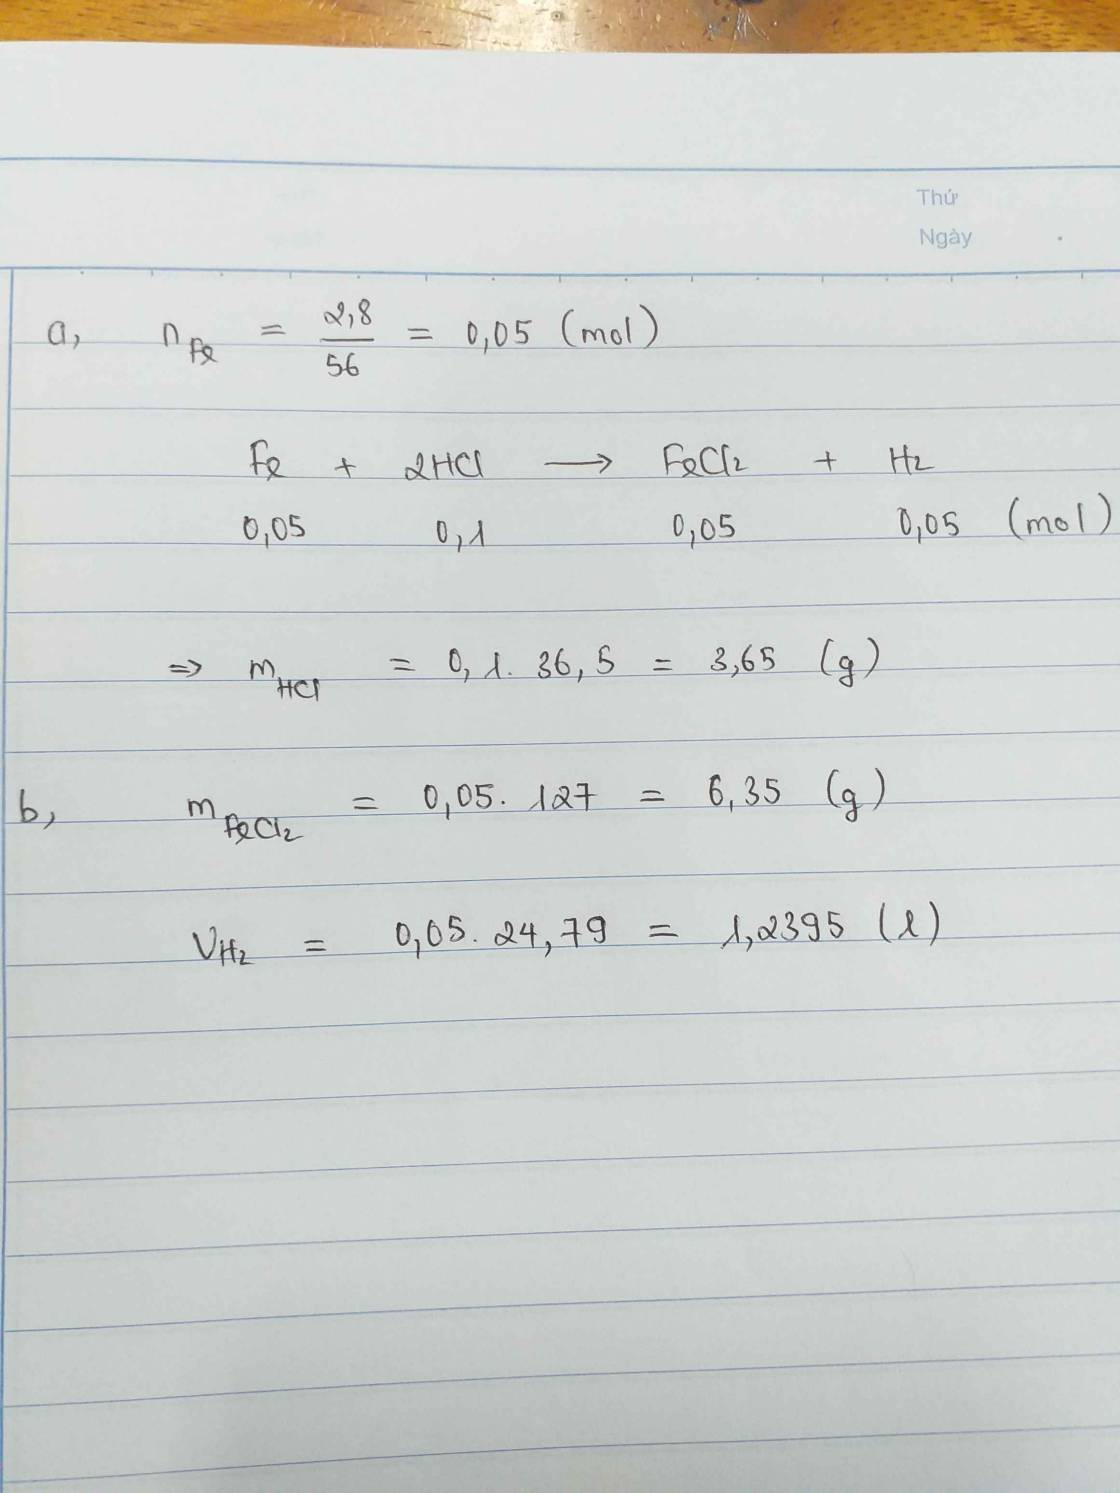 Thứ
Ngày
a, n Fe = 2,8 / 56 = 0,05 (mol)
Fe + 2HCl → FeCl2 + H2
0,05 0,1 0,05 0,05 (mol)
=> m HCl = 0,1. 36,5 = 3,65 (g)
b, m FeCl2 = 0,05. 127 = 6,35 (g)
V H2 = 0,05. 24,79 = 1,2395 (l)